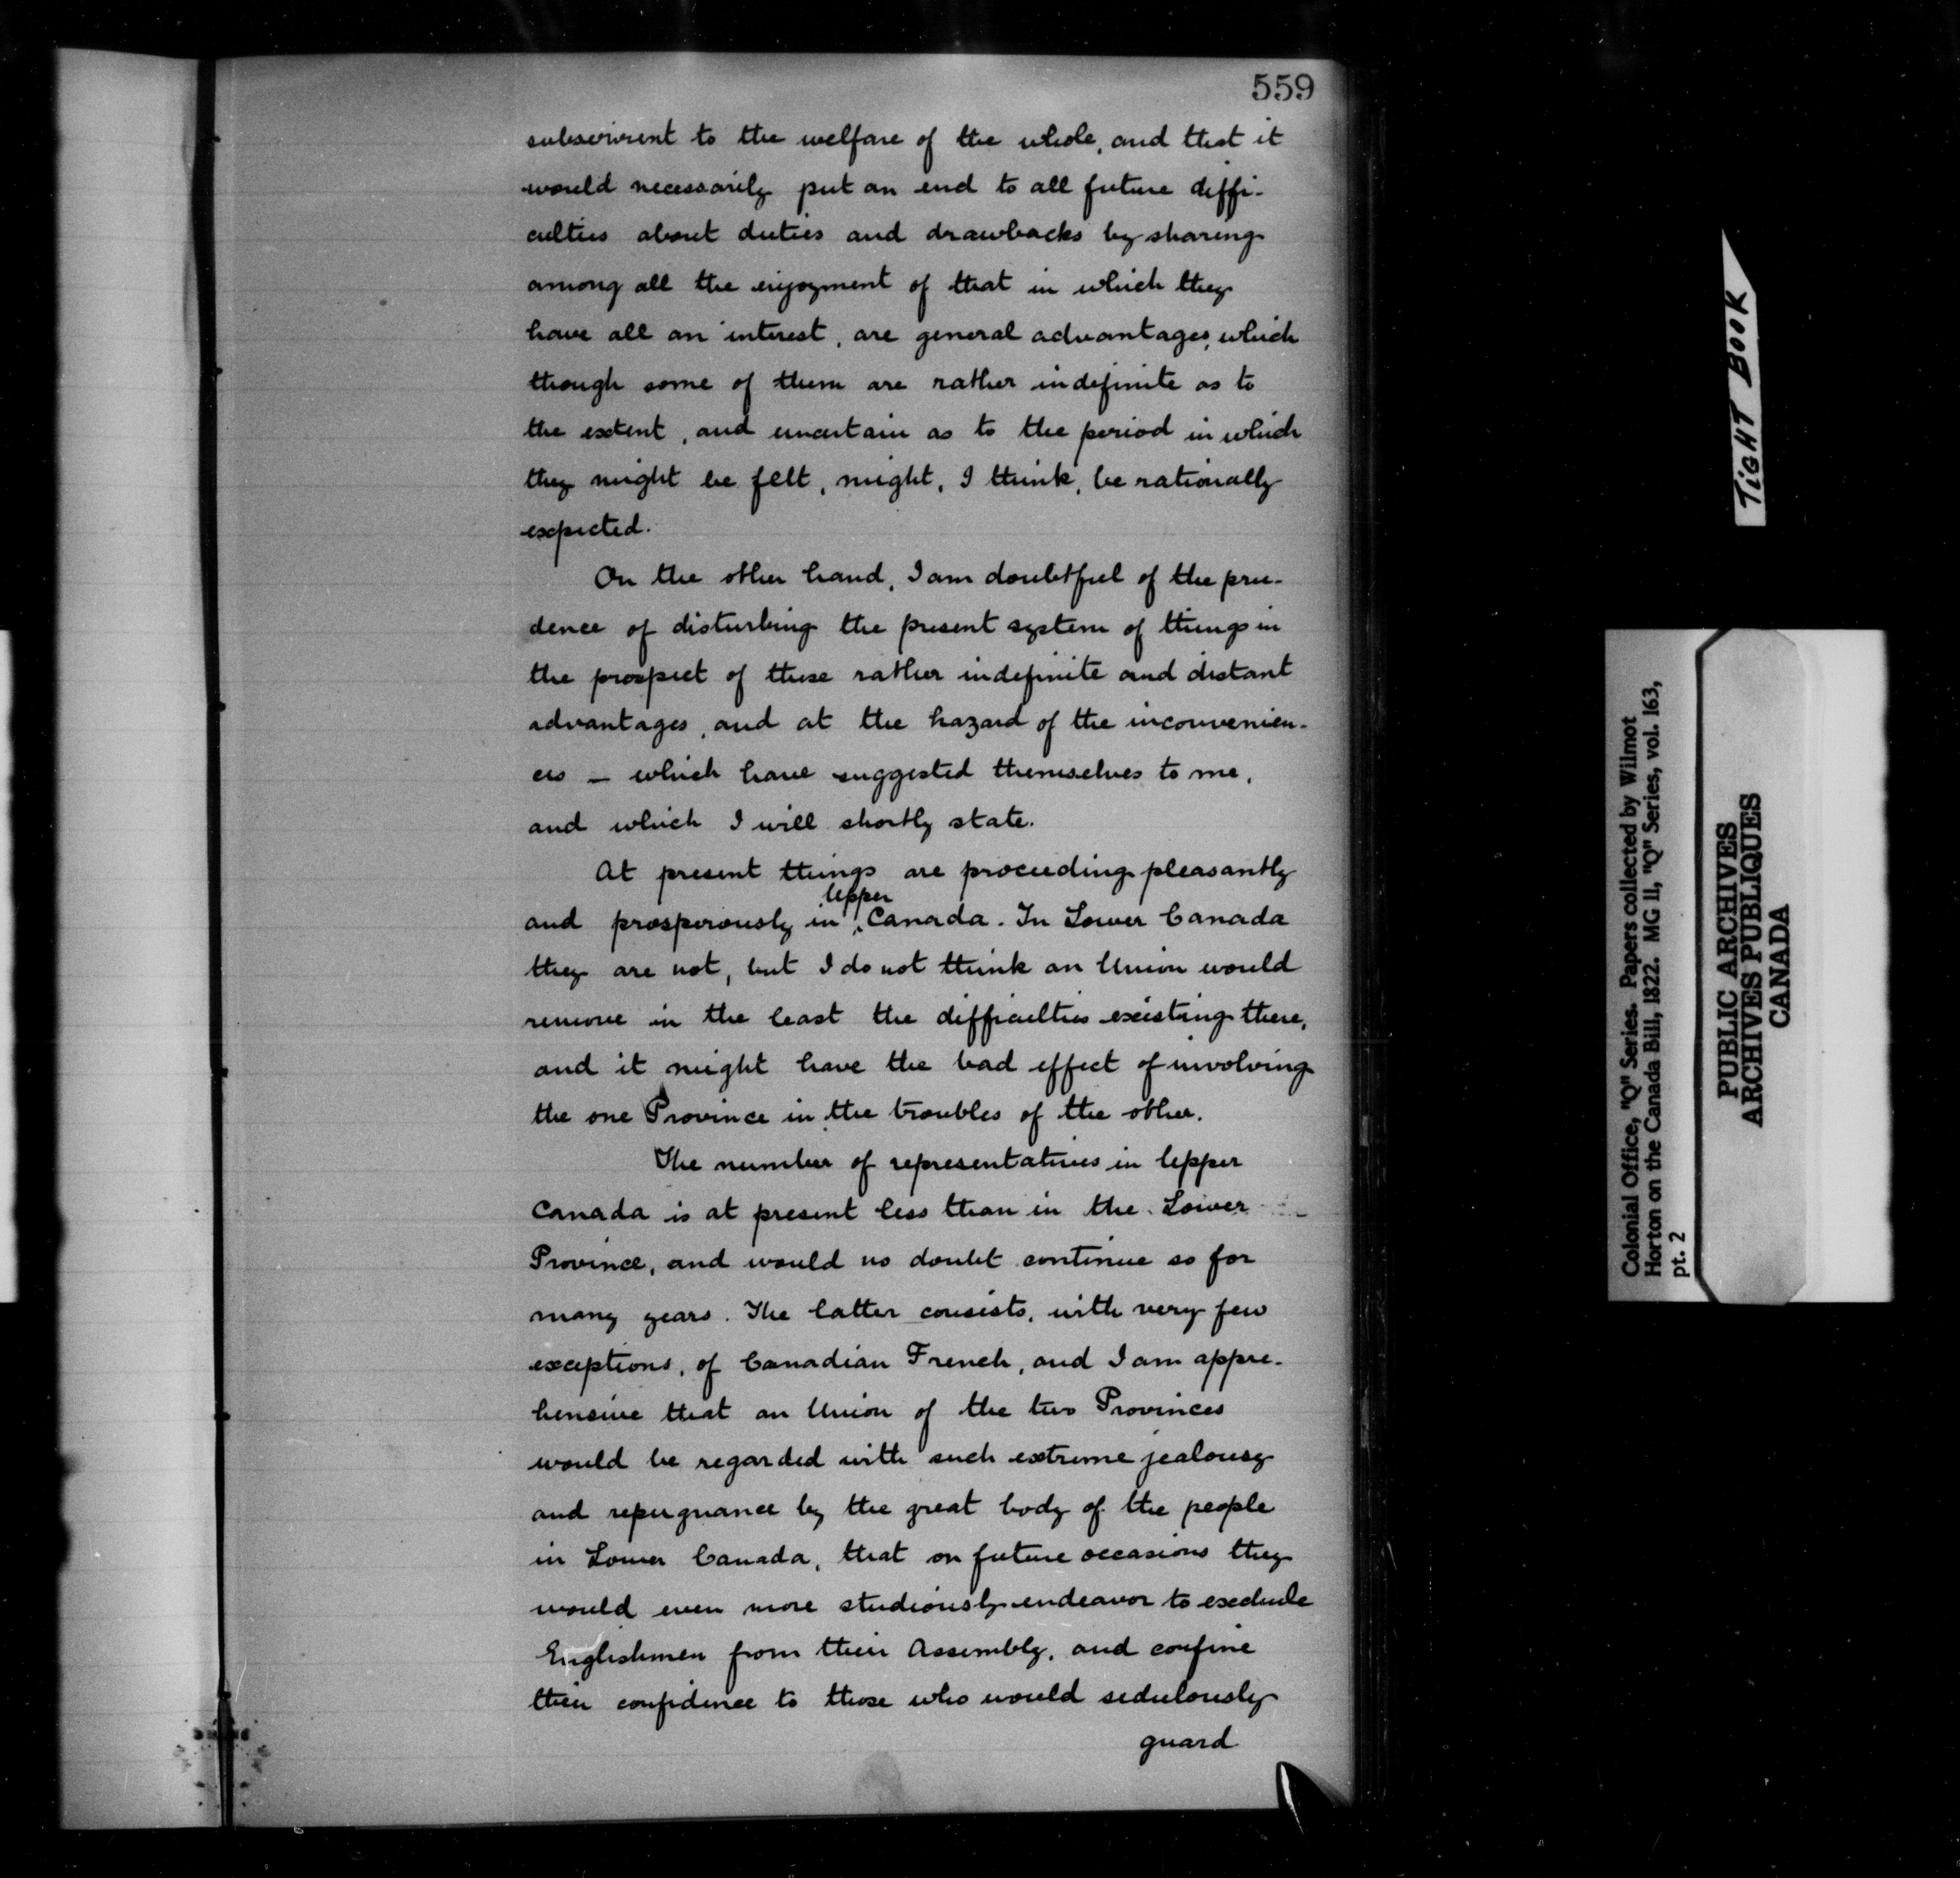 559
subservient to the welfare of the whole, and that it
would necessarily put an end to all future diffi-
culties about duties and drawbacks by sharing
among all the enjoyment of that in which they
have all an interest, are general advantages, which
though some of them are rather indefinite as to
the extent, and uncertain as to the period in which
they might be felt, might, I think, be rationally
expected.
On the other hand, I am doubtful of the pru-
dence of disturbing the present system of things in
the prospect of these rather indefinite and distant
advantages, and at the hazard of the inconvenien-
ces – which have suggested themselves to me,
and which I will shortly state.
At present things are proceeding pleasantly
and prosperously in Upper Canada. In Lower Canada
they are not, but I do not think an Union would
remove in the least the difficulties existing there,
and it might have the bad effect of involving
the one Province in the troubles of the other.
The number of representatives in Upper
Canada is at present less than in the Lower
Province, and would no doubt continue so for
many years. The latter consists, with very few
exceptions, of Canadian French, and I am appre-
hensive that an Union of the two Provinces
would be regarded with such extreme jealousy
and repugnance by the great body of the people
in Lower Canada, that on future occasions they
would even more studiously endeavor to exclude
Englishmen from their Assembly, and confine
their confidence to those who would sedulously
guard
TIGHT BOOK
Colonial Office, "Q" Series. Papers collected by Wilmot
Horton on the Canada Bill, 1822. MG 11, "Q" Series, vol. 163,
pt. 2
PUBLIC ARCHIVES
ARCHIVES PUBLIQUES
CANADA